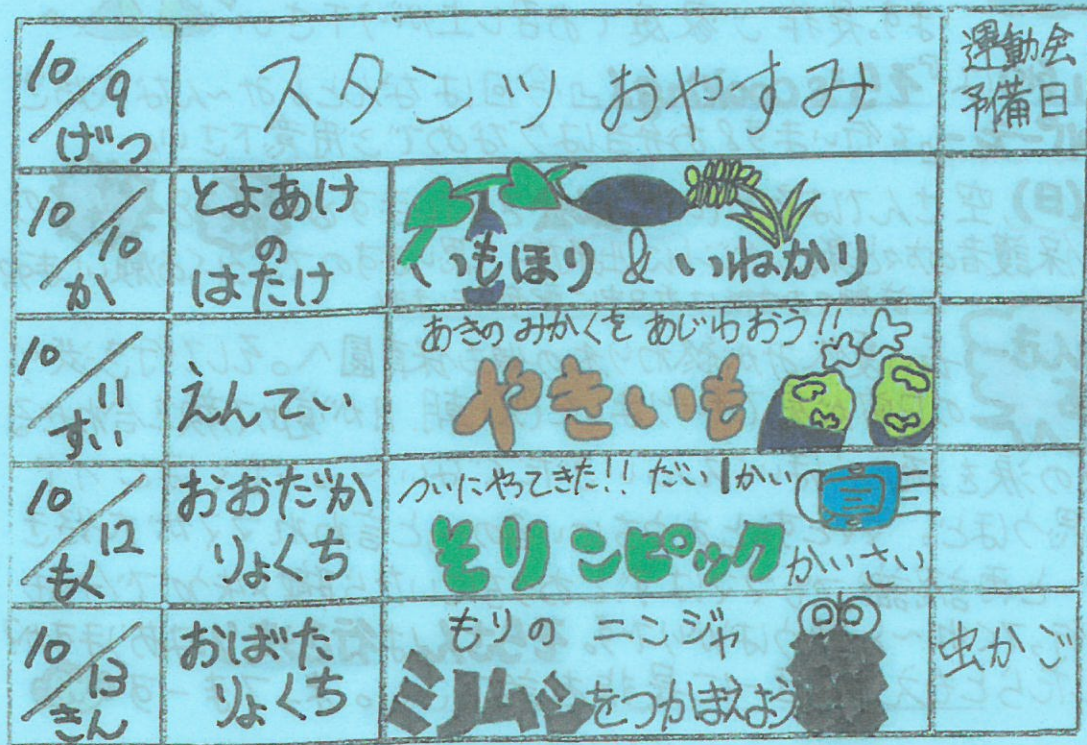 10/9
げつ
スタンツ おやすみ
運動会
予備日
10/10
か
とよあけ
の
はたけ
いもほり & いねかり
10/11
すい
えんてい
あきの みかくを あじわおう!!
やきいも
10/12
もく
おおだか
りょくち
ついにやってきた!! だい1かい
そりンピック
かいさい
10/13
きん
おばた
りょくち
もりの ニンジャ
ミノムシをつかまえよう
虫かご